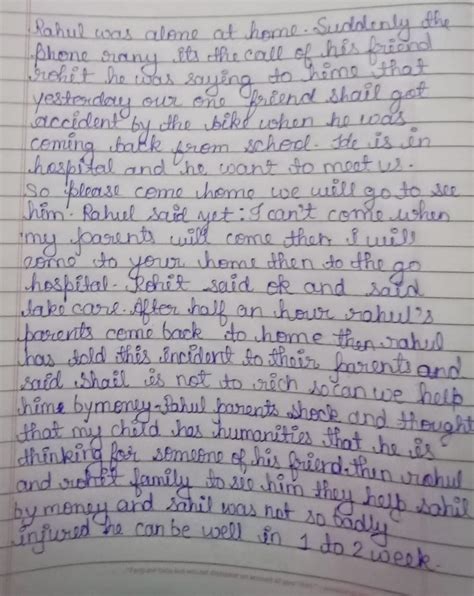 Rahul was alone at home. Suddenly the
phone rang its the call of his friend
rohit he was saying to hime that
yesterday our one friend shail got
accident by the bike when he was
coming back from school. He is in
hospital and he want to meet us.
So please come home we will go to see
him. Rahul said yet : I can't come when
my parents will come then I will
come to your home then to the go
hospital. Rohit said ok and said
take care. After half an hour rahul's
parents come back to home then rahul
has told this incident to thair parents and
said shail is not to rich so can we help
hime by money. Rahul parents shock and thought
that my child has humanities that he is
thinking for someone of his friend. then rahul
and rohit family to see him they help sahil
by money and sahil was not so badly
injured he can be well in 1 to 2 week.